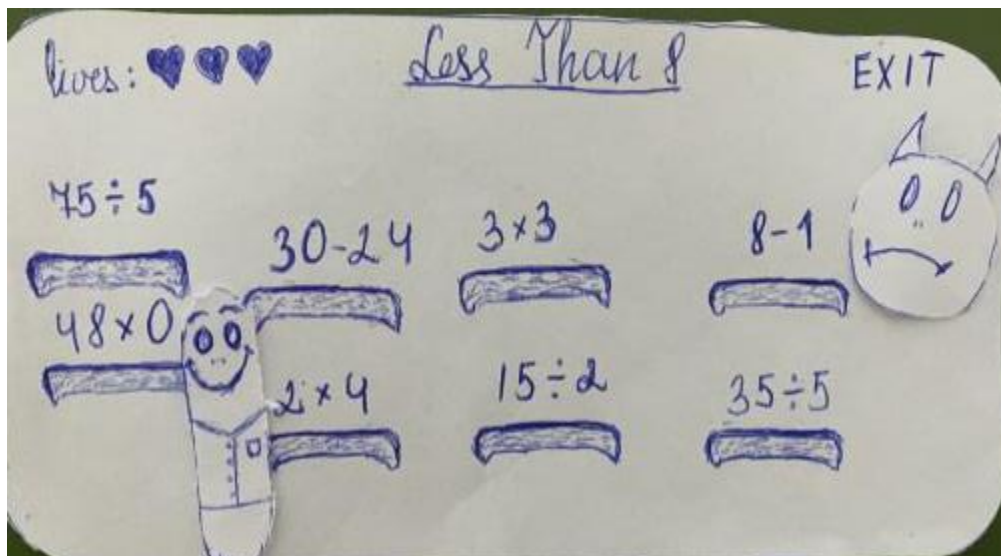 lives: Less Than 8 EXIT
75÷5
30-24 3×3 8-1
48×0
2×4 15÷2 35÷5